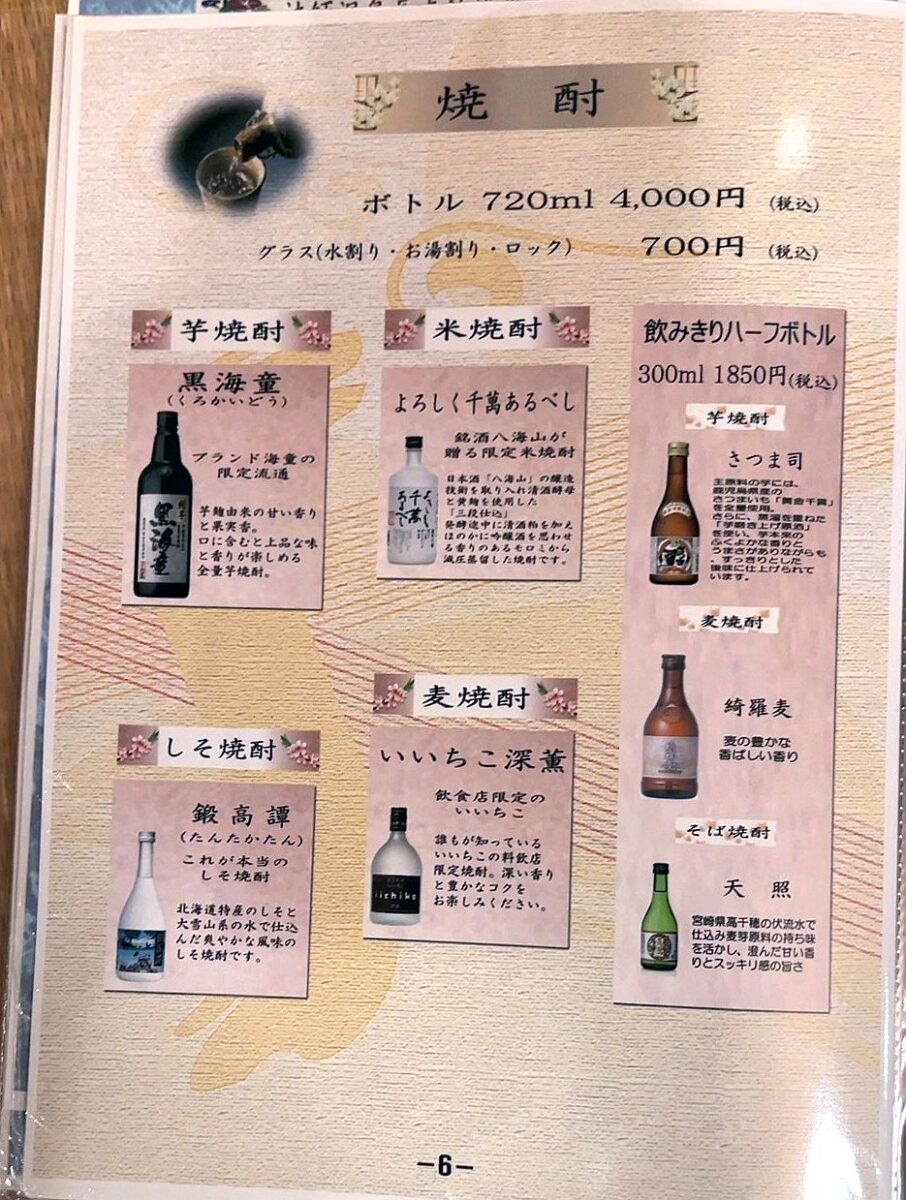 焼酎
ボトル 720ml 4,000円 (税込)
グラス(水割り・お湯割り・ロック) 700円 (税込)
芋焼酎
黒海童
(くろかいどう)
ブランド海童の
限定流通
芋麹由来の甘い香り
と果実香。
口に含むと上品な味
と香りが楽しめる
全量芋焼酎。
黒海童
米焼酎
よろしく千萬あるべし
銘酒八海山が
贈る限定米焼酎
日本酒「八海山」の醸造
技術を取り入れ清酒酵母
と黄麹を使用した
「三段仕込」
発酵途中に清酒粕を加え
ほのかに吟醸酒を思わせ
る香りのあるモロミから
減圧蒸留した焼酎です。
よろしく
千萬
あるべし
しそ焼酎
鍛高譚
(たんたかたん)
これが本当の
しそ焼酎
北海道特産のしそと
大雪山系の水で仕込
んだ爽やかな風味の
しそ焼酎です。
麦焼酎
いいちこ深薫
飲食店限定の
いいちこ
誰もが知っている
いいちこの料飲店
限定焼酎。深い香り
と豊かなコクを
お楽しみください。
iichiko
飲みきりハーフボトル
300ml 1850円(税込)
芋焼酎
さつま司
主原料の芋には、
鹿児島県産の
さつまいも「黄金千貫」
を全量使用。
さらに、蒸溜を重ねた
「芋磨き上げ原酒」
を使い、芋本来の
ふくよかな香りと
うまさがありながらも
、すっきりとした
後味に仕上げられて
います。
麦焼酎
綺羅麦
麦の豊かな
香ばしい香り
そば焼酎
天照
宮崎県高千穂の伏流水で
仕込み麦芽原料の持ち味
を活かし、澄んだ甘い香
りとスッキリ感の旨さ
-6-